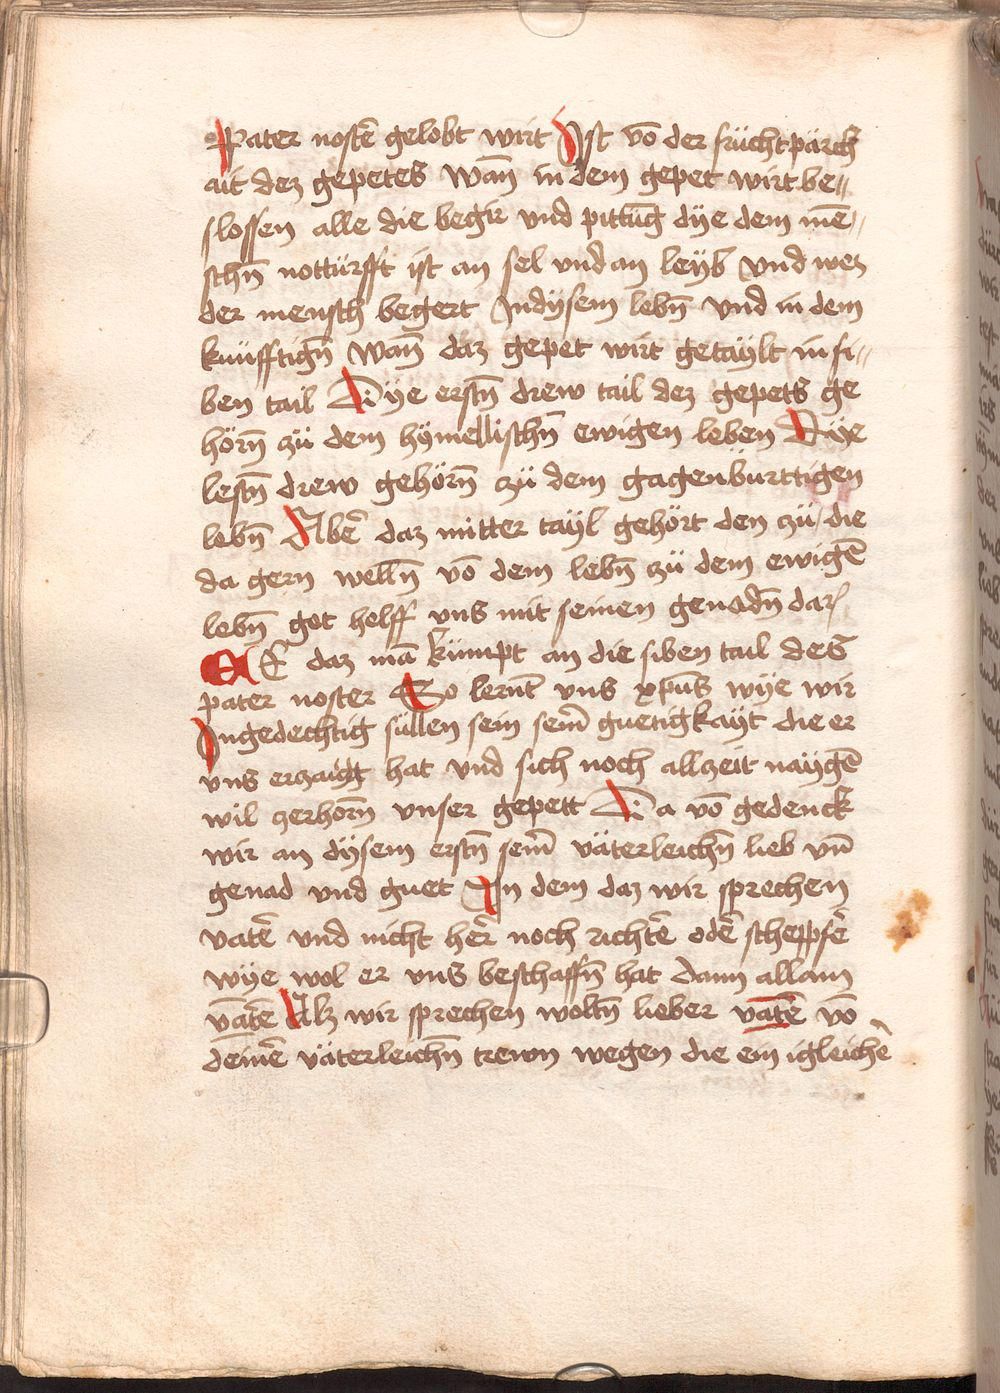 Pater nostē gelobt wirt Jst vō der früchtpärck
ait dez gepetes Wan̄ in dem gepet wirt be〃
slossen alle die begir vnd pittūg dÿe dem mē〃
schn̄ notturfft ist an sel vnd an leÿb Vnd wez
der mensch begert Jndÿsem lebn̄ vnd in dem
kuüfftign̄ Wan̄ daz gepet wirt getaÿlt in si〃
ben tail Dÿe erstn̄ drew tail dez gepets ge
hörn̄ zü dem hÿmellischn̄ ewigen leben Dÿe
lestn̄ drew gehörn̄ zü dem gagenbürttigen
lebn̄ Abē daz mitter taÿl gehört den zü die
da gern welln̄ vō dem lebn̄ zü dem ewigē
lebn̄ got helff vns mit seinen genadn̄ dar
EE daz mā kümpt an die siben tail des
pater noster So lernt̄ vns xp̄us wÿe wir
Jngedechtig süllen sein sein̄ guetigkaÿt die er
vns erzaigt hat vnd sich noch allzeit naÿgē
wil zerhorn̄ vnser gepett Da vō gedenck
wir an dÿsem erstn̄ sein̄ väterleichn̄ lieb vn̄
genad vnd guet Jn dem daz wir sprechen
vatē vnd nicht her̄ noch richtē odē scheppfē
wÿe wol er vns beschaffn̄ hat dann allain
vatē Alz wir sprechen woltn̄ lieber vatē vō
deinē väterleichn̄ trewn wegen die ein igleichē